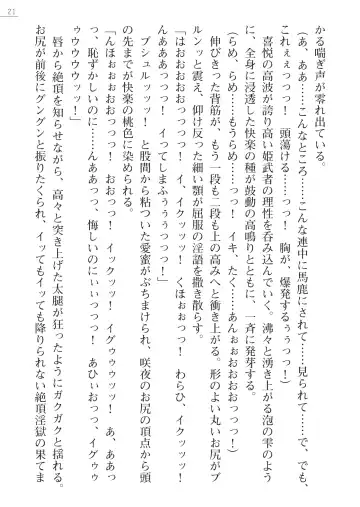 21
かる喘ぎ声が零れ出ている。
（あ、ああ……こんなところ……こんな連中に馬鹿にされて……見られて……で、でも、
これぇぇっっっ！　頭蕩ける……っっっ！　胸が、爆発するぅぅっっ！）
　喜悦の高波が誇り高い姫武者の理性を呑み込んでいく。沸々と湧き上がる泡の雫のよう
に、全身に浸透していた快楽の種が鼓動の高鳴りとともに、一斉に発芽する。
（らめ、らめ……もうらめ……っっっ！　イキ、たく……あんぉぉおおおおっっ！）
　伸びきった背筋が、もう一段も二段も上の高みへと衝き上がる。形のよい丸いお尻がブ
ルンッと震え、仰け反った細い顎が屈服の淫語を撒き散らす。
「はおおおおおっっっ！　イ、イクッッッ！　くほぉぉっっ！　わらひ、イクッッッ！
んあああっっっ！　イってしまふぅぅぅっっっっ！」
　プシュルッッッ！　と股間から粘ついた愛蜜がぶちまけられ、咲夜のお尻の頂点から頭
の先までが快楽の桃色に染められる。
「んほぉぉおおおっっっ！　おおっっ！　イクゥッッッ！　イグゥゥウッッ！　あ、ああ
っっ、恥ずかしいのに……んああああっっ、悔しいのにぃぃっっっ！　あひぃおっっ、イグゥゥ
ゥウウウウッッ！」
　唇から絶頂を知らせながら、高々と突き上げた太腿が狂ったようにガクガクと揺れる。
お尻が前後にグングンと振りたくられ、イッてもイッても降りられない絶頂淫獄の果てま